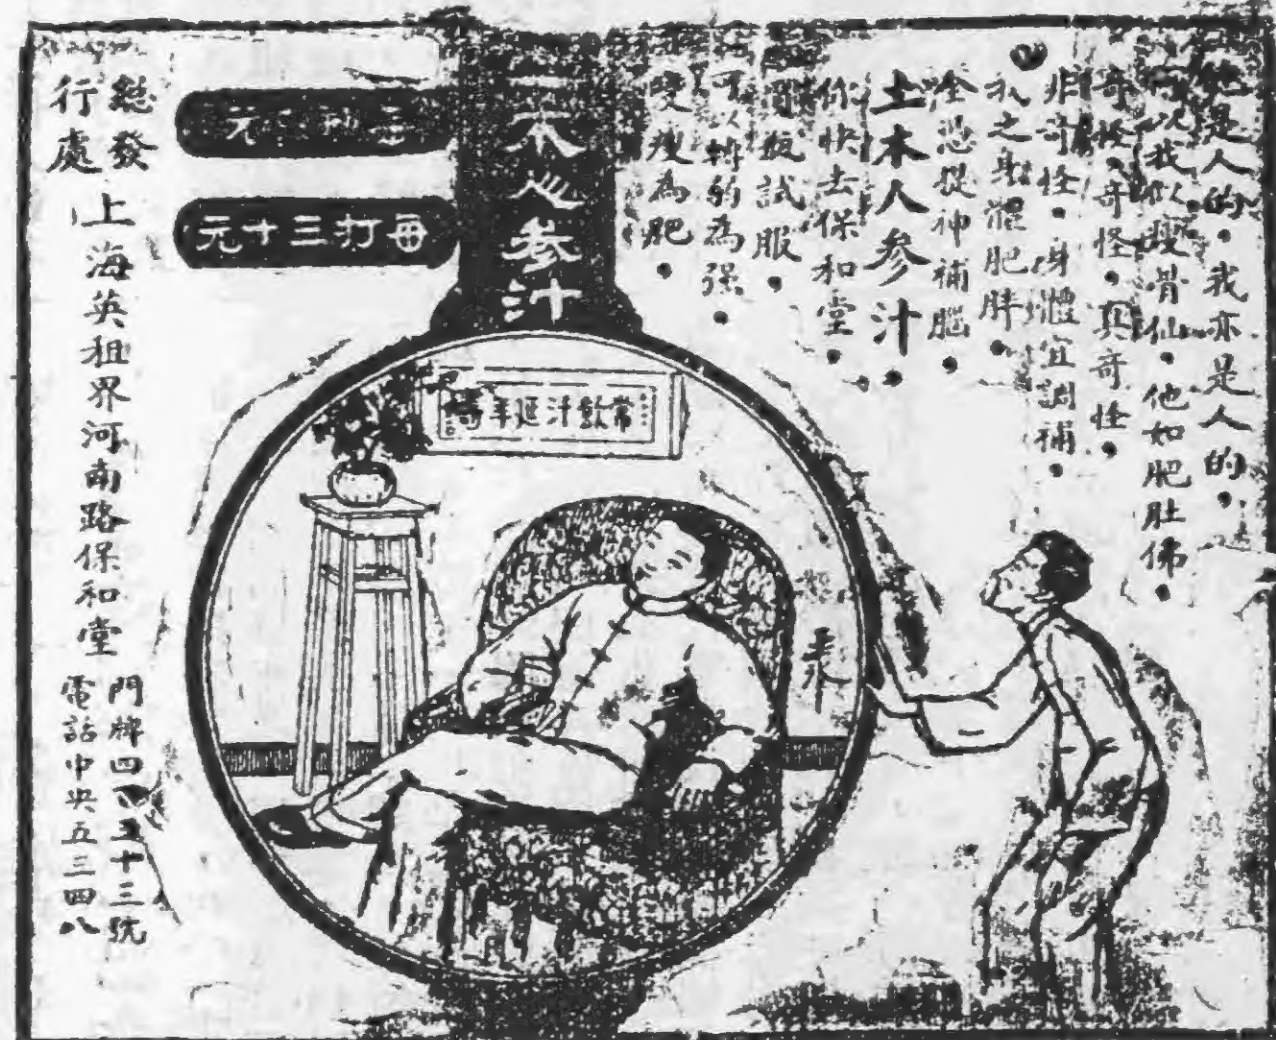 是人的。我亦是人的。
何以我似瘦骨仙。他如肥肚佛。
奇怪奇怪。真奇怪。
非奇怪。身體宜調補。
我之身體肥胖。
全恐提神補腦。
土本人參汁。
你快去保和堂。
買瓶試服。
可以轉弱為强。
變瘦為肥。
本人參汁
每打三十元
常飲汁延年
總發行處
上海英租界河南路保和堂
門牌四五十三號
電話中央五三四八